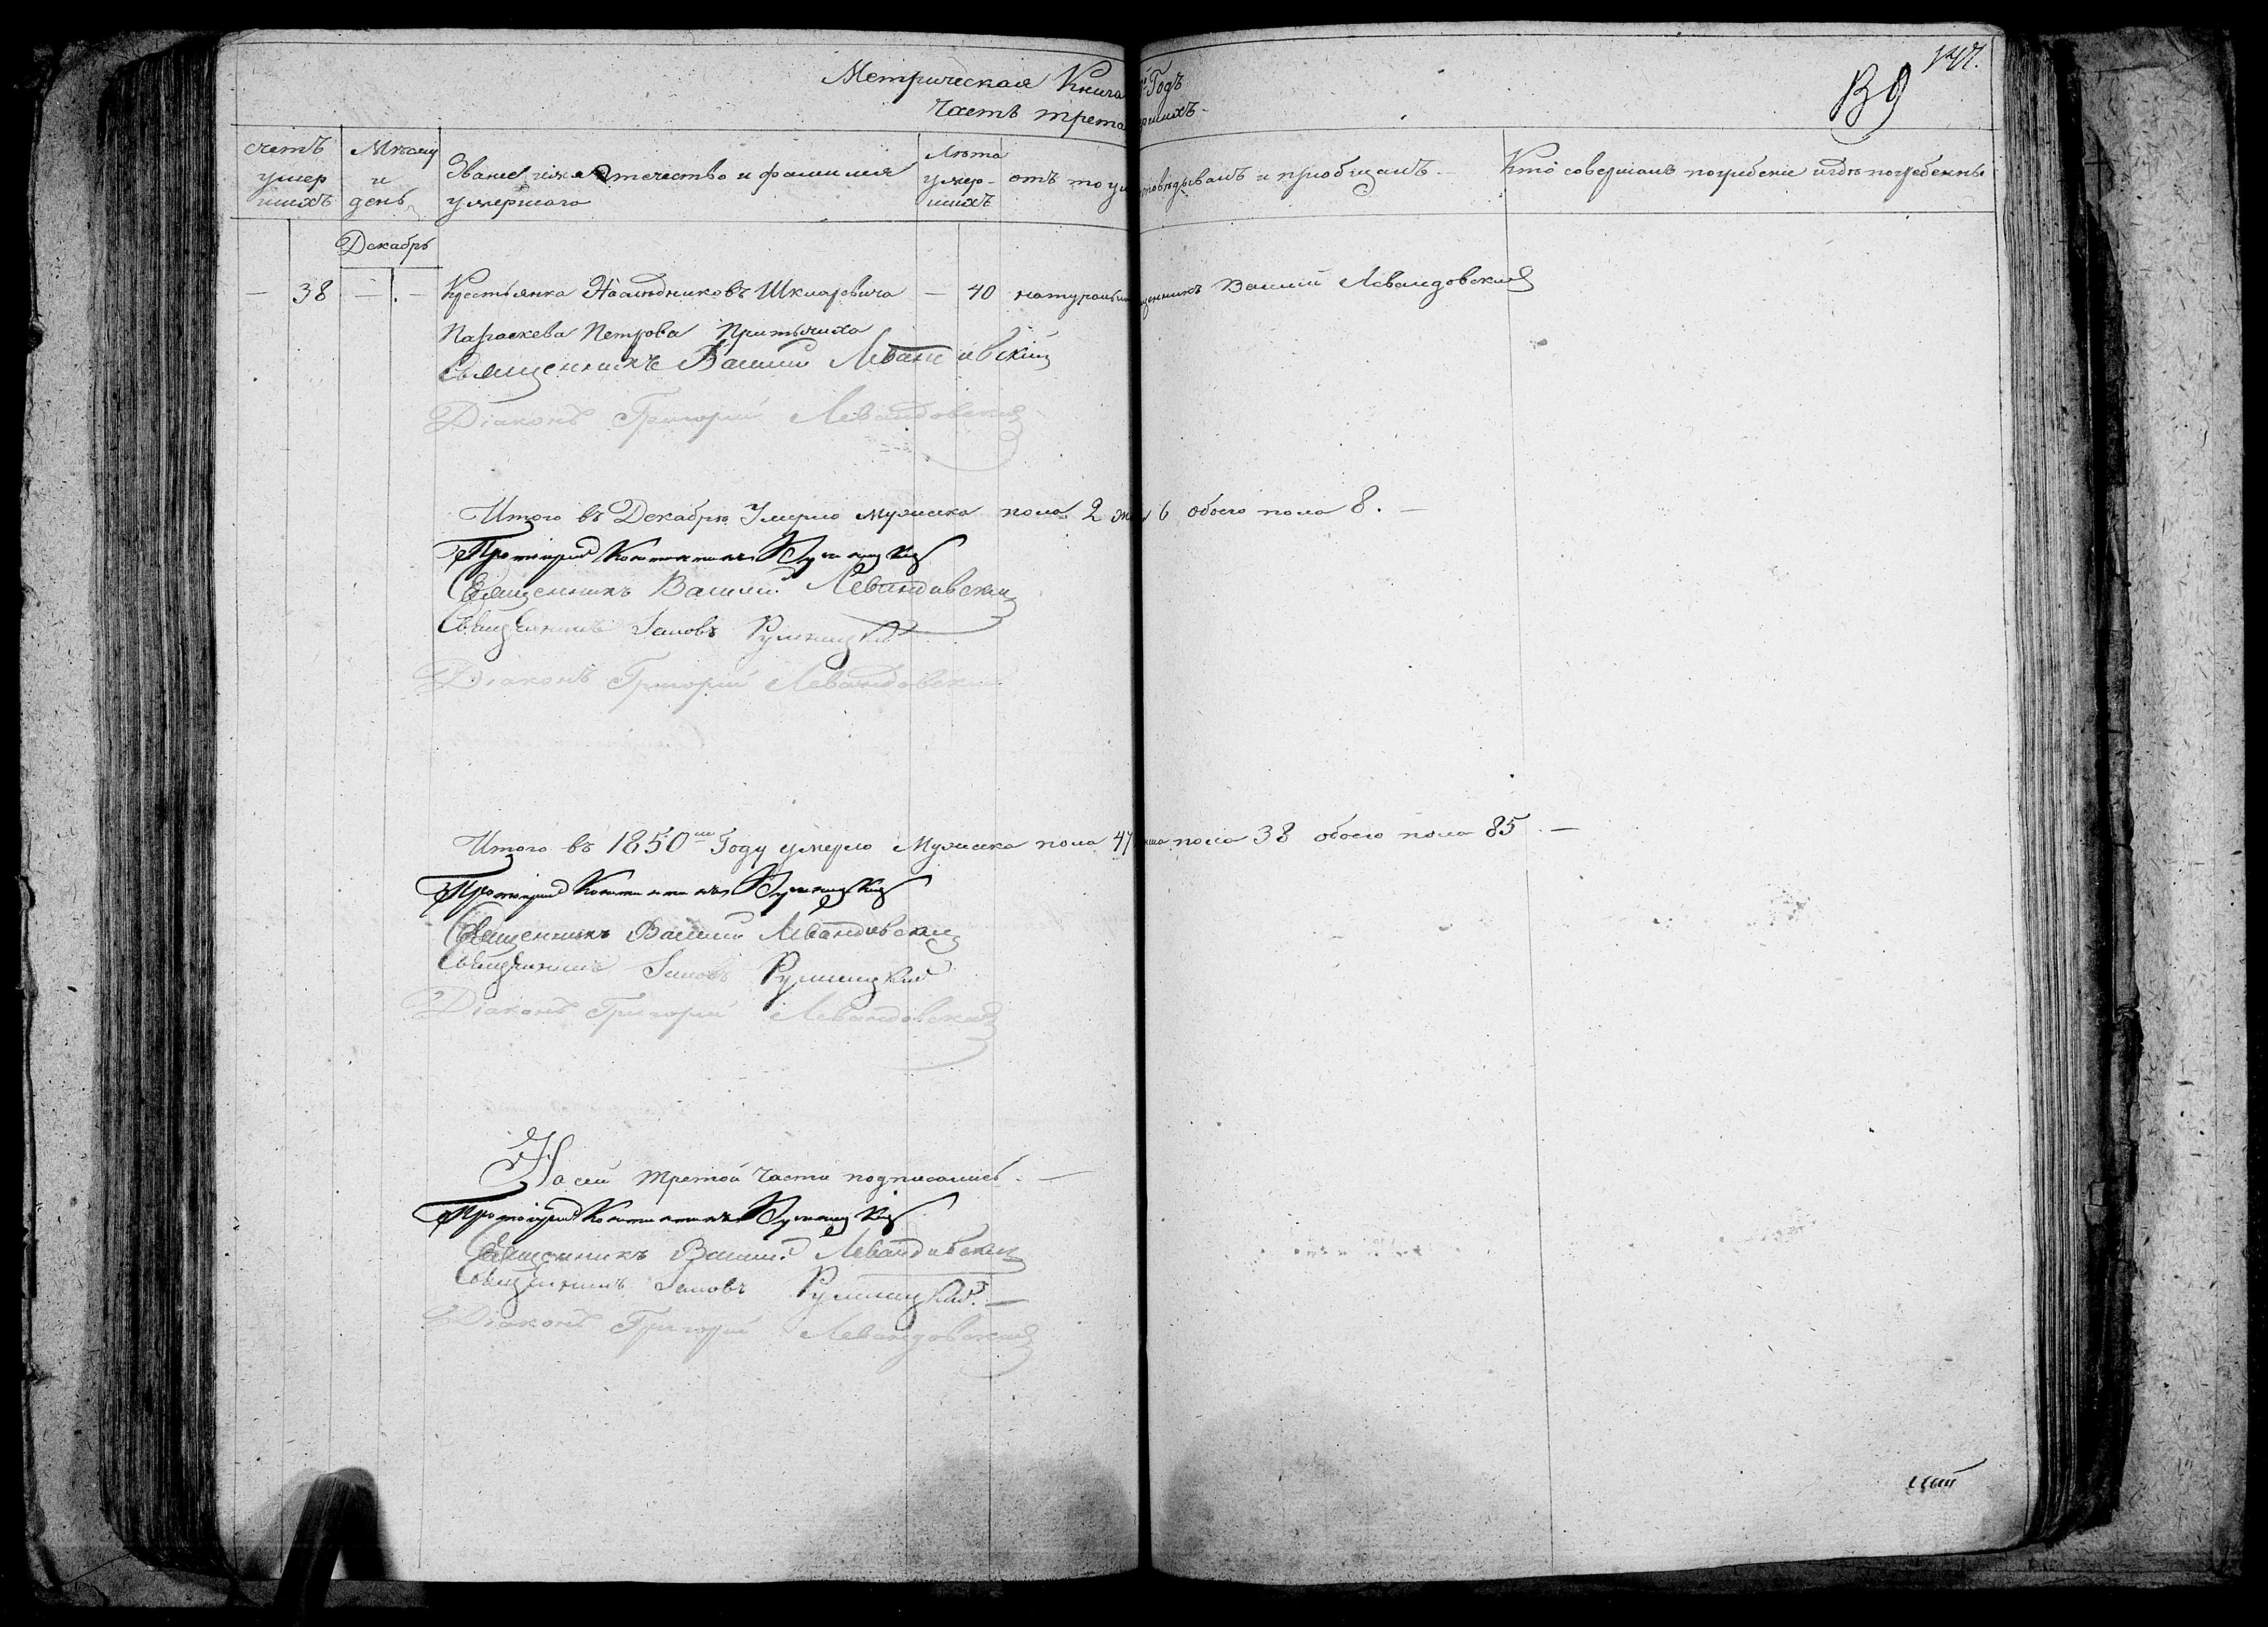 Метрическая Книга Годъ
Часть трета
счетъ умер шихъ
Мѣсяц и день
Званіе имя отечество и фамилия умершаго
Лѣта умер- шихъ
отъ чего
исповѣдывалъ и приобщалъ.
Кто совершалъ погребение и гдѣ погребенны
Декабрь
— 38 — . — Крестьянка Наслѣдниковъ Шкляревича — 40 натуральной Василій Левандовскій
Параскева Петрова
Священникъ Василій Левандовскій
Діаконъ Григорій Левандовскій
Итого въ Декабрѣ Умерло мужеска пола 2 6 обоего пола 8. —
Протоіерей Константинъ Румницкій
Священникъ Василій Левандовскій
Священникъ Іаковъ Румницкій
Діаконъ Григорій Левандовскій
Итого въ 1850мъ Году умерло Мужеска пола 47 пола 38 обоего пола 85 —
Протоіерей Константинъ Румницкій
Священникъ Василій Левандовскій
Священникъ Іаковъ Румницкій
Діаконъ Григорій Левандовскій
На сей третой части подписались. —
Протоіерей Константинъ Румницкій
Священникъ Василій Левандовскій
Священникъ Іаковъ Румницкій. —
Діаконъ Григорій Левандовскій